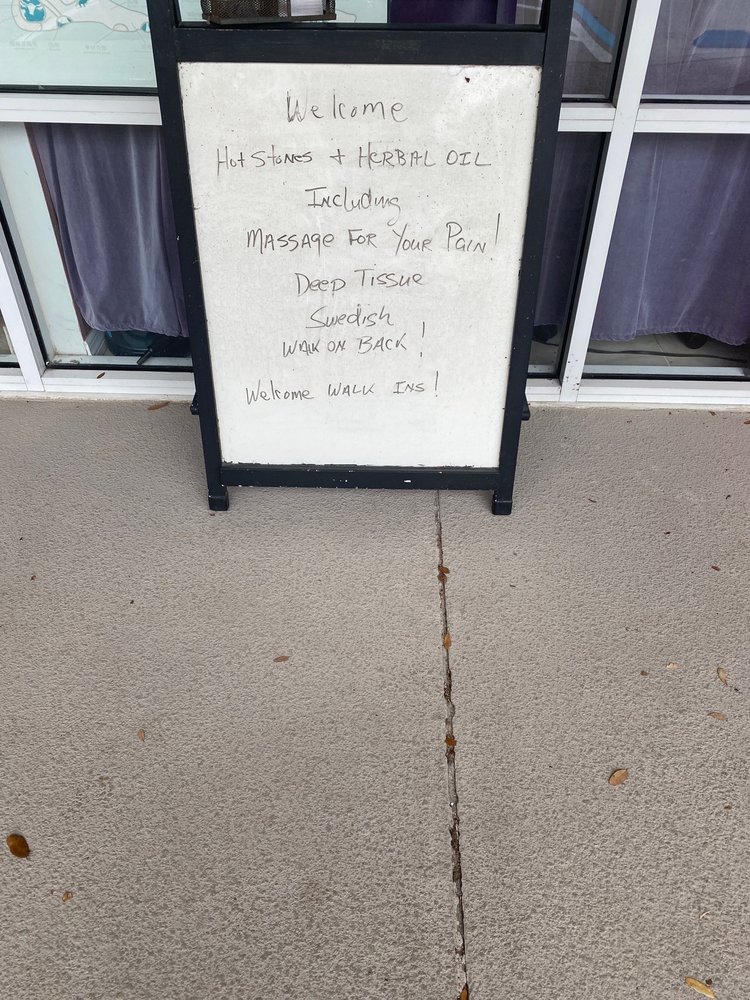 Welcome
Hot Stones + HERBAL OIL
Including
MASSAGE FOR YOUR PAIN!
Deep Tissue
Swedish
WALK ON BACK!
Welcome WALK INS!